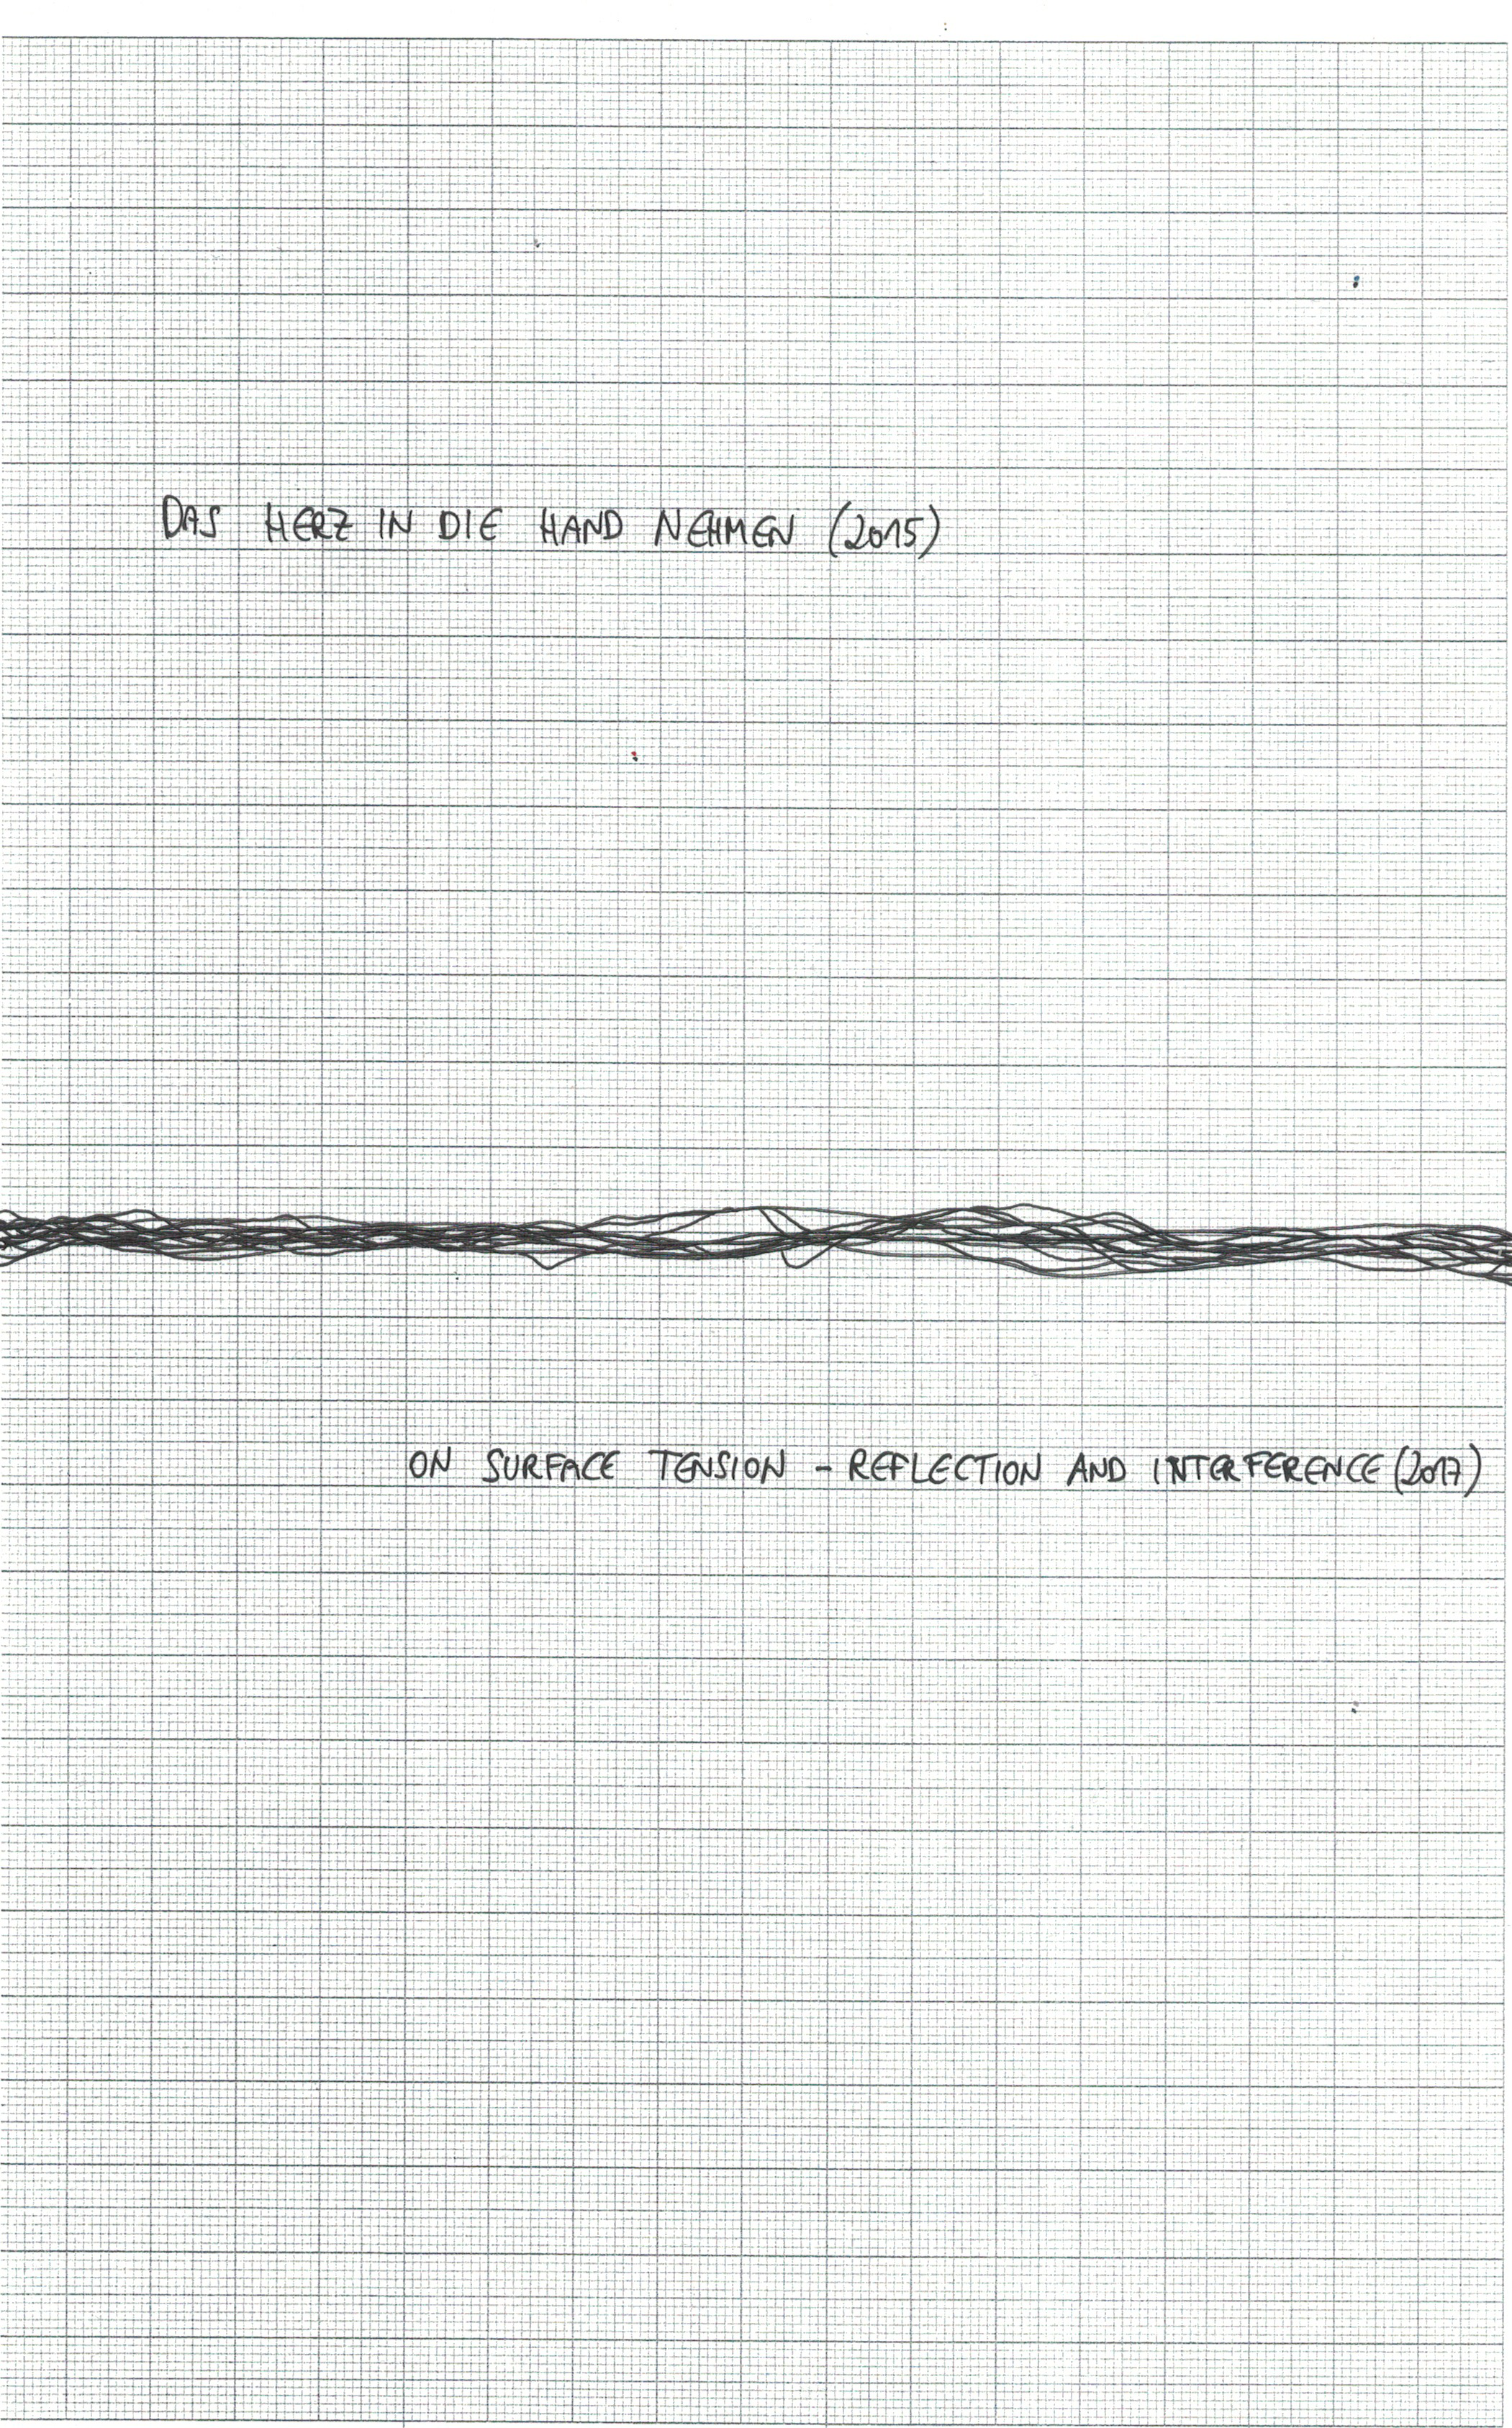 DAS HERZ IN DIE HAND NEHMEN (2015)
ON SURFACE TENSION - REFLECTION AND INTERFERENCE (2017)